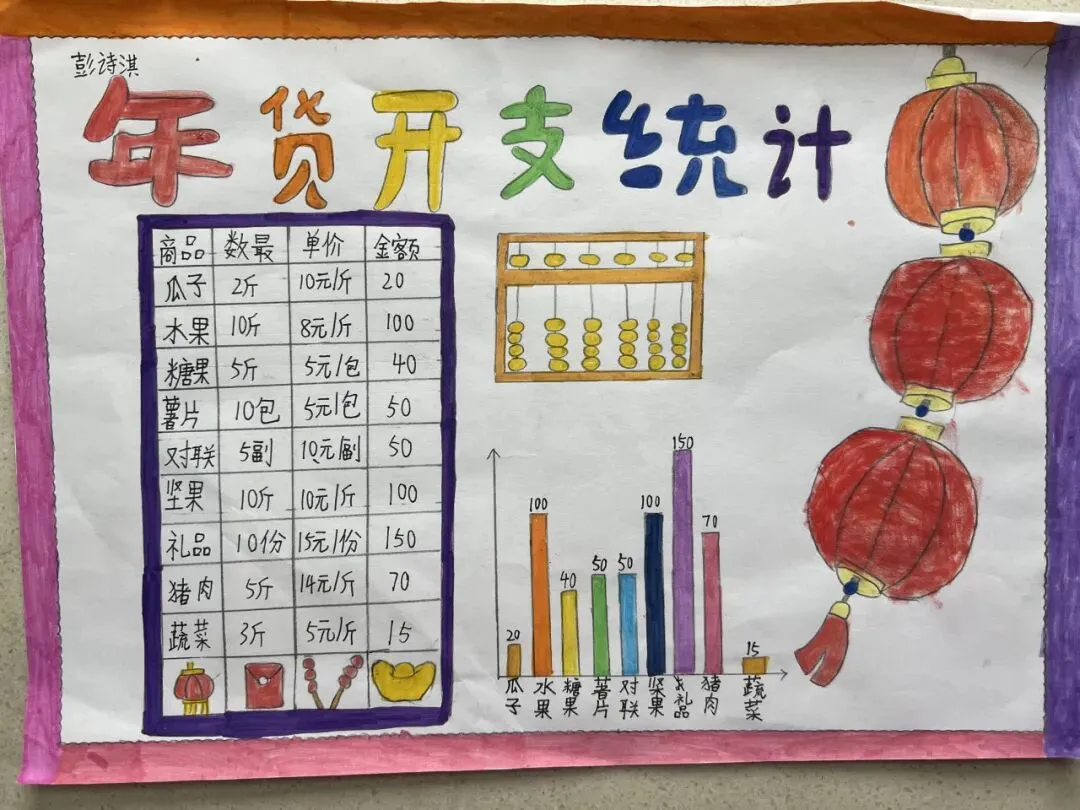 彭诗淇
年货开支统计
商品 数最 单价 金额
瓜子 2斤 10元/斤 20
水果 10斤 8元/斤 100
糖果 5斤 5元/包 40
薯片 10包 5元/包 50
对联 5副 10元/副 50
坚果 10斤 10元/斤 100
礼品 10份 15元/份 150
猪肉 5斤 14元/斤 70
蔬菜 3斤 5元/斤 15
20 100 40 50 50 100 150 70 15
瓜子 水果 糖果 薯片 对联 坚果 礼品 猪肉 蔬菜